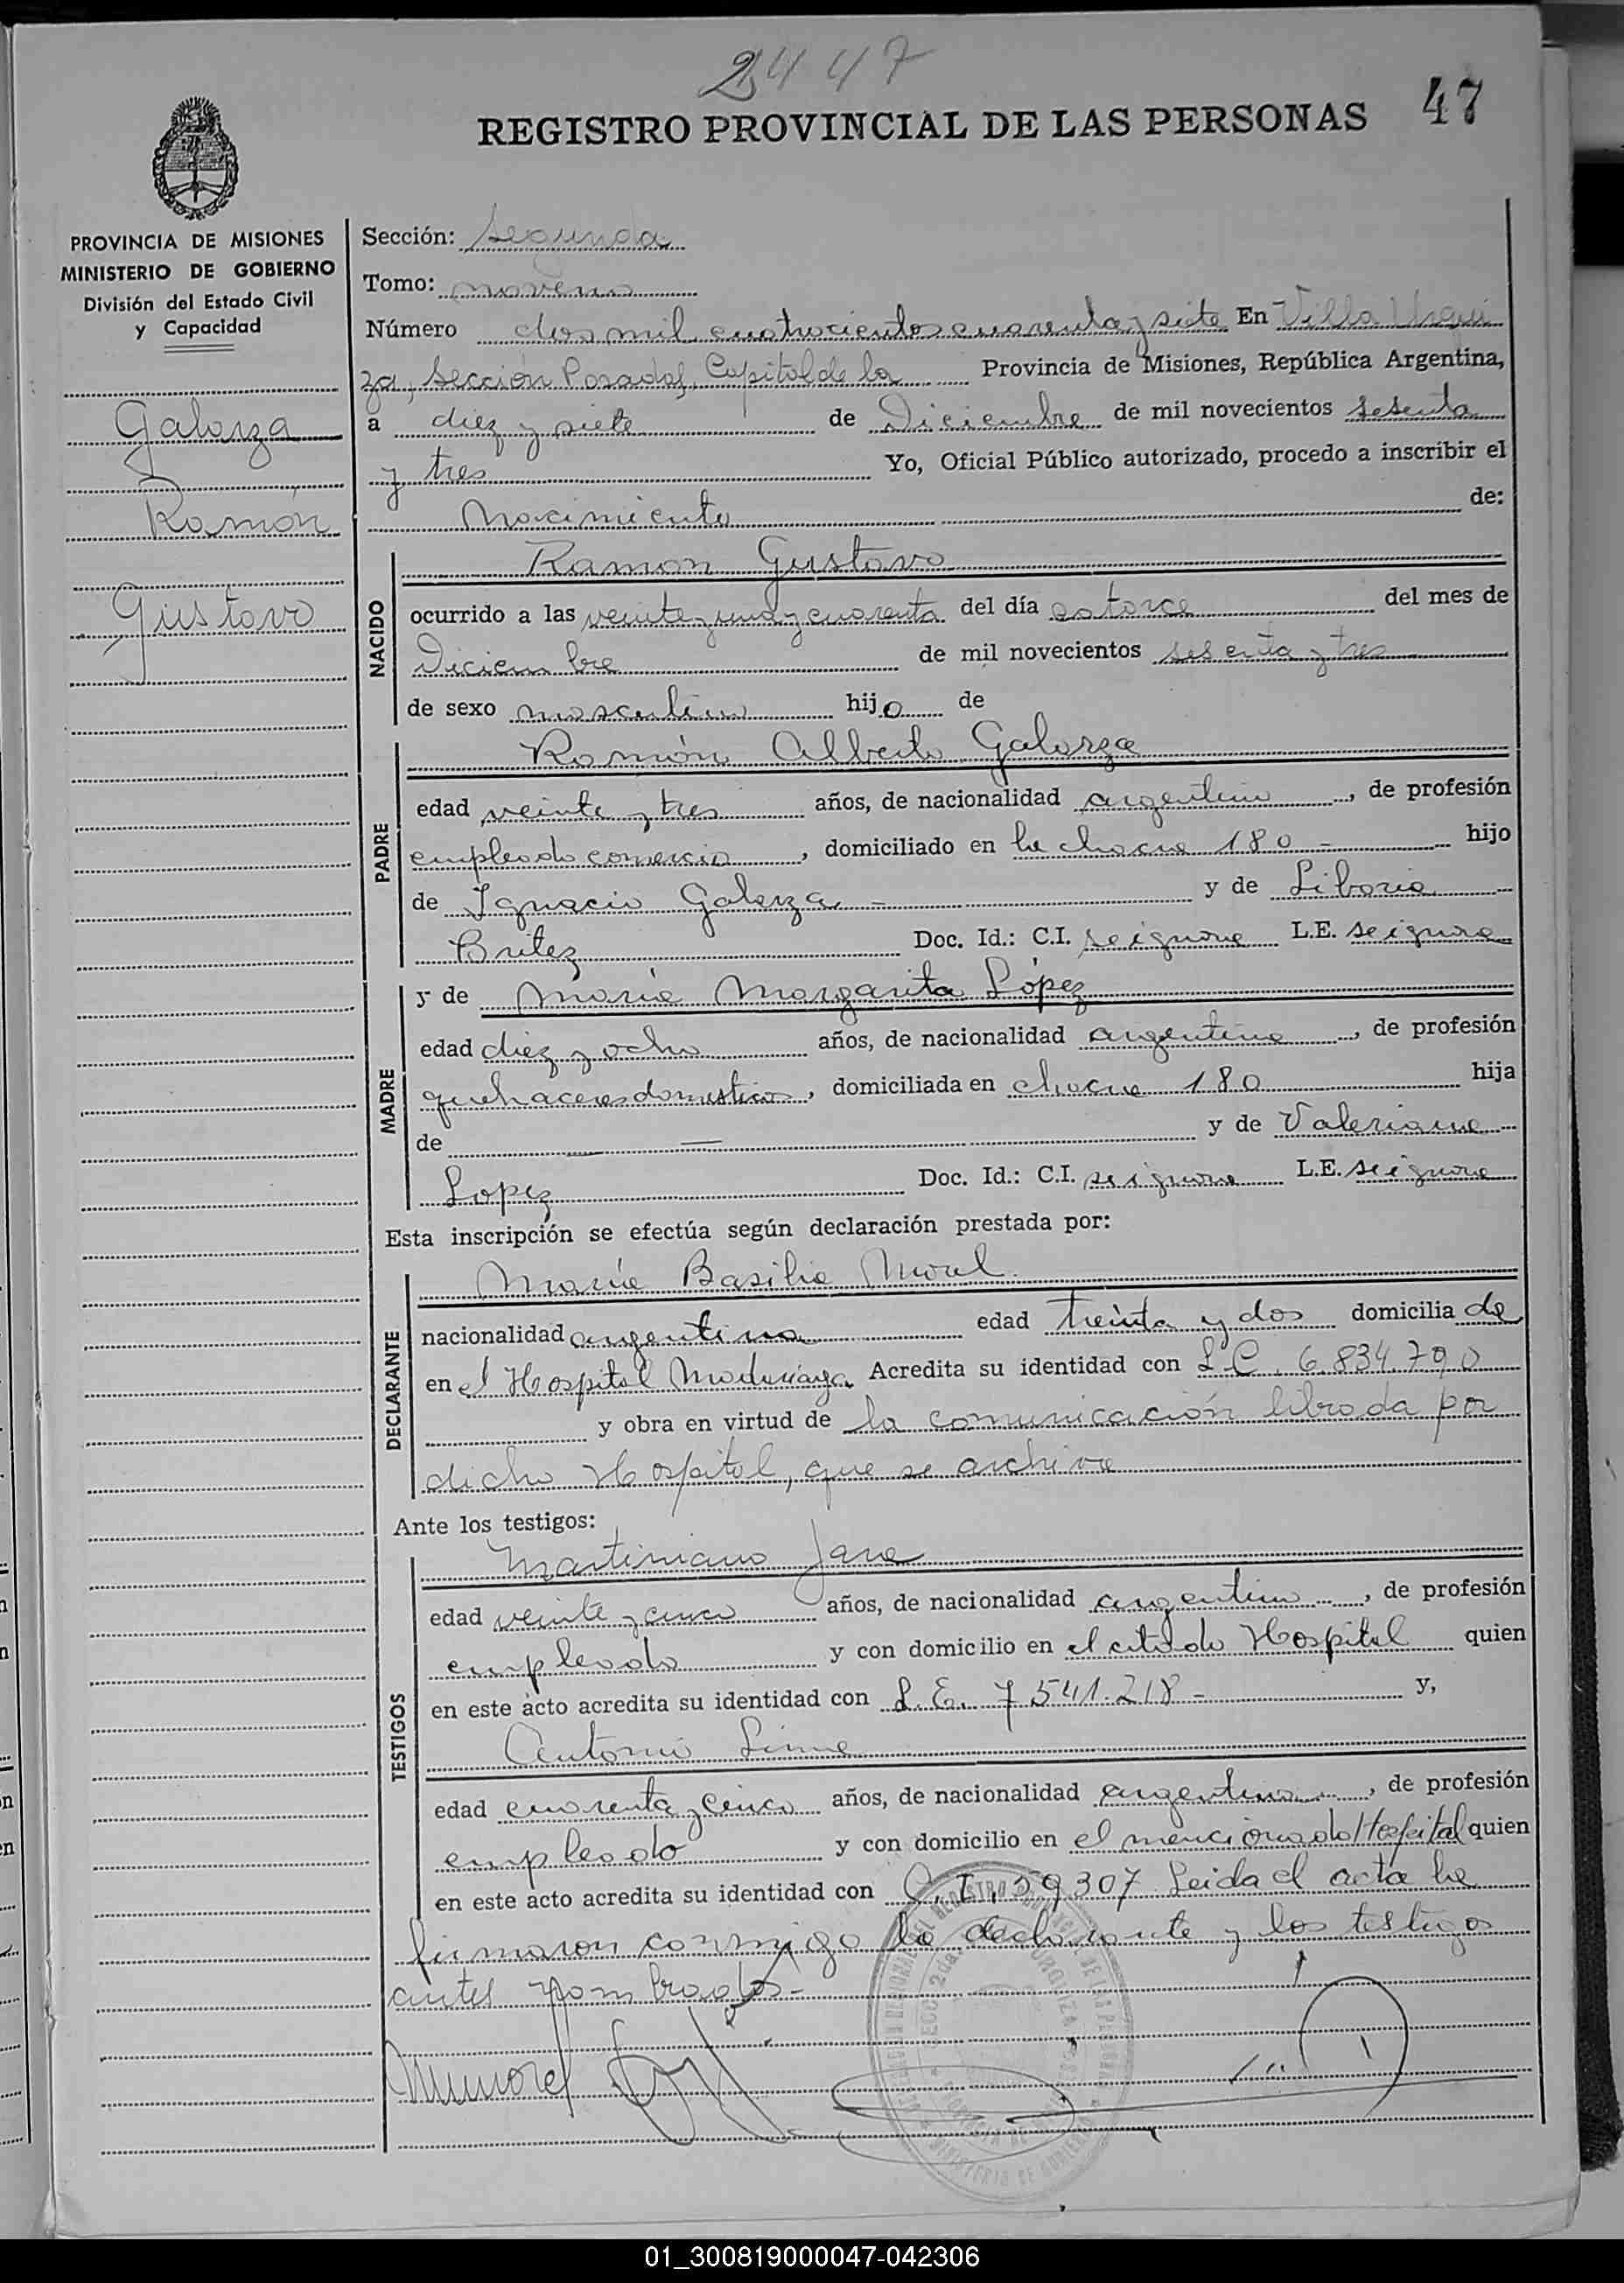 2447
REGISTRO PROVINCIAL DE LAS PERSONAS 47
PROVINCIA DE MISIONES
MINISTERIO DE GOBIERNO
División del Estado Civil
y Capacidad
Galarza
Ramón
Gustavo
Sección: Segunda
Tomo: noveno
Número dos mil cuatrocientos cuarenta y siete En Villa Urqui
za, Sección Posadas, Capital de la Provincia de Misiones, República Argentina,
a diez y siete de Diciembre de mil novecientos sesenta
y tres Yo, Oficial Público autorizado, procedo a inscribir el
Nacimiento de:
NACIDO
Ramon Gustavo
ocurrido a las veinte y una y cuarenta del día catorce del mes de
Diciembre de mil novecientos sesenta y tres
de sexo masculino hijo de
PADRE
Ramón Alberto Galarza
edad veinte y tres años, de nacionalidad argentino, de profesión
empleado comercio, domiciliado en la chacra 180 - hijo
de Ignacio Galarza - y de Liboria
Britez Doc. Id.: C.I. se ignora L.E. se ignora
MADRE
y de María Margarita López
edad diez y ocho años, de nacionalidad argentina, de profesión
quehaceres domesticos, domiciliada en chacra 180 hija
de — y de Valeriana
Lopez Doc. Id.: C.I. se ignora L.E. se ignora
Esta inscripción se efectúa según declaración prestada por:
DECLARANTE
María Basilia Morel
nacionalidad argentina edad treinta y dos domiciliada
en el Hospital Madariaga Acredita su identidad con L.C. 6.834.790
y obra en virtud de la comunicación librada por
dicho Hospital, que se archiva
Ante los testigos:
TESTIGOS
Martiniano Jara
edad veinte y cinco años, de nacionalidad argentino, de profesión
empleado y con domicilio en el citado Hospital quien
en este acto acredita su identidad con L.E. 7541.218 - y,
Antonio Lima
edad cuarenta y cinco años, de nacionalidad argentino, de profesión
empleado y con domicilio en el mencionado Hospital quien
en este acto acredita su identidad con C.I. 59307 Leida el acta la
firmaron conmigo la declarante y los testigos
antes nombrados -
01_300819000047-042306